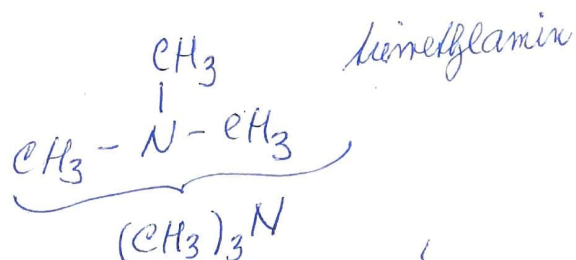 CH3
trimetylamin
CH3 - N - CH3
(CH3)3N